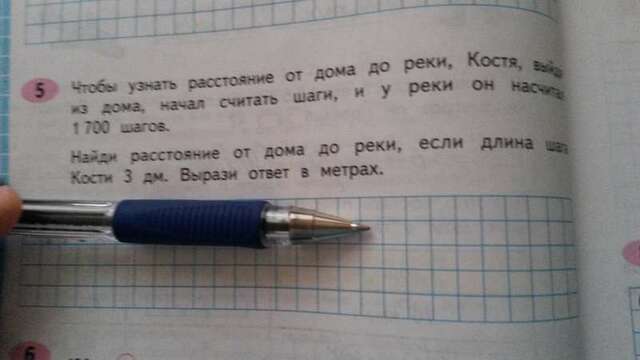 5
Чтобы узнать расстояние от дома до реки, Костя, выйдя
из дома, начал считать шаги, и у реки он насчитал
1 700 шагов.
Найди расстояние от дома до реки, если длина шага
Кости 3 дм. Вырази ответ в метрах.
6